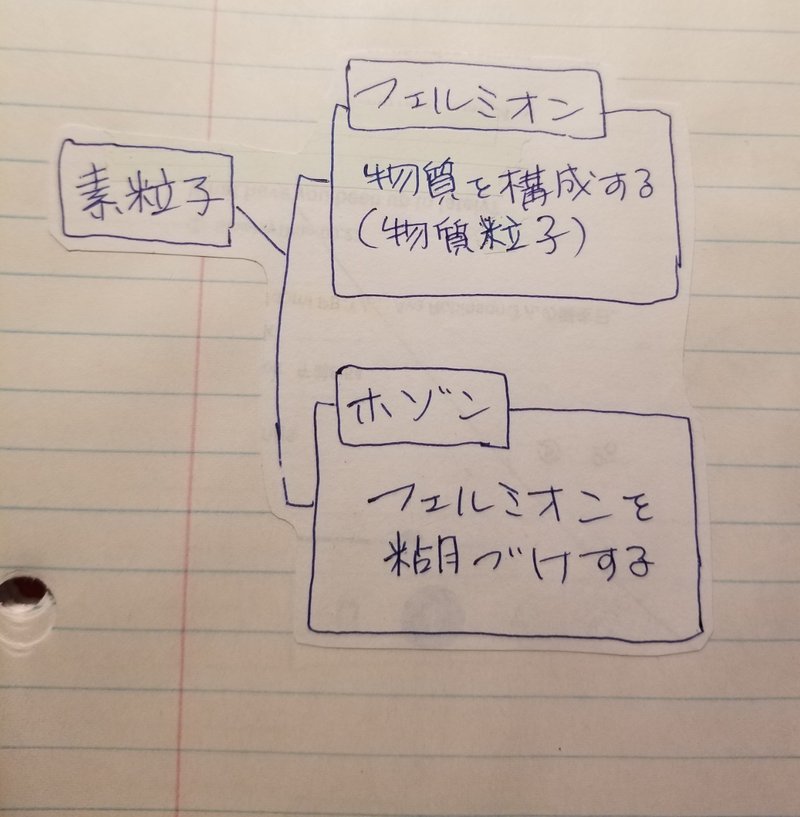 素粒子
フェルミオン
物質を構成する
(物質粒子)
ホゾン
フェルミオンを
糊づけする